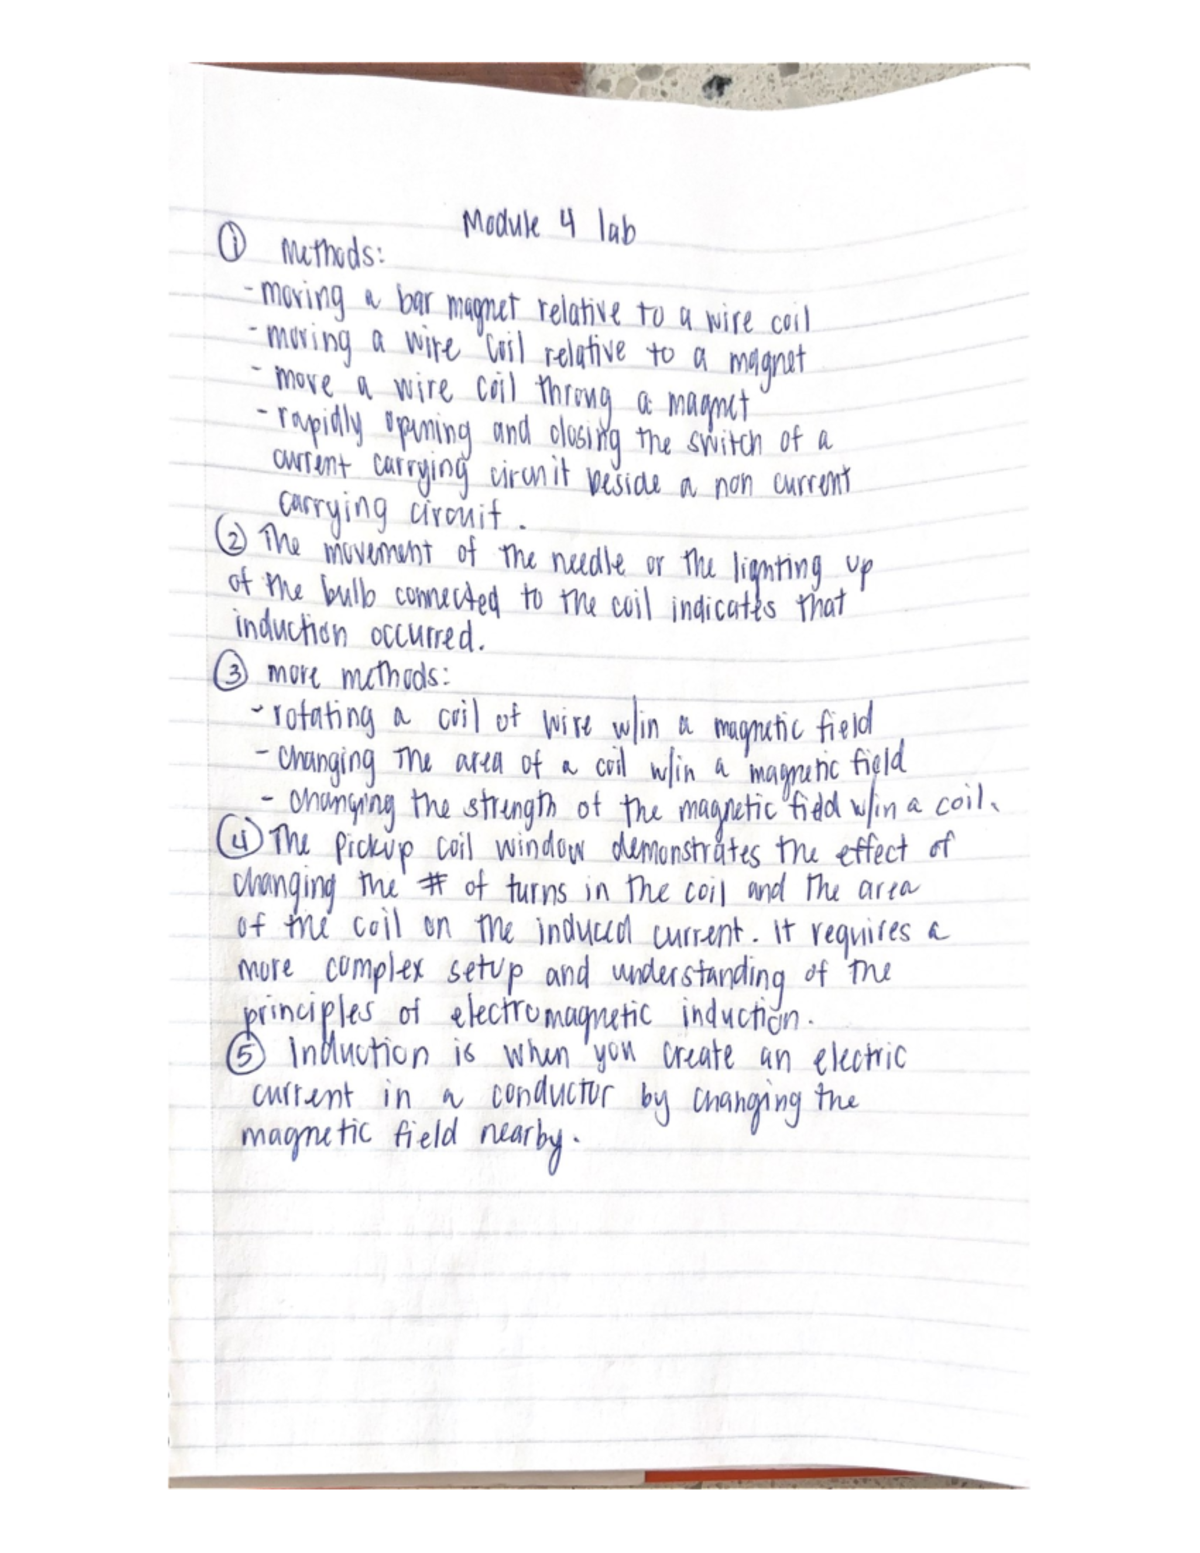 Module 4 lab
① Methods:
- moving a bar magnet relative to a wire coil
- moving a wire coil relative to a magnet
- move a wire coil throug a magnet
- rapidly opening and closing the switch of a
current carrying circuit beside a non current
carrying circuit.
② The movement of the needle or the lighting up
of the bulb connected to the coil indicates that
induction occurred.
③ more methods:
- rotating a coil of wire w/in a magnetic field
- changing the area of a coil w/in a magnetic field
- changing the strength of the magnetic field w/in a coil.
④ The pickup coil window demonstrates the effect of
changing the # of turns in the coil and the area
of the coil on the induced current. it requires a
more complex setup and understanding of the
principles of electromagnetic induction.
⑤ Induction is when you create an electric
current in a conductor by changing the
magnetic field nearby.